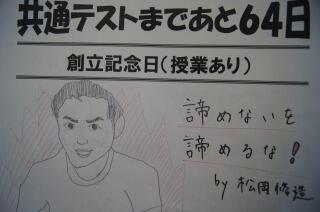 共通テストまであと64日
創立記念日(授業あり)
諦めないを
諦めるな!
by 松岡修造